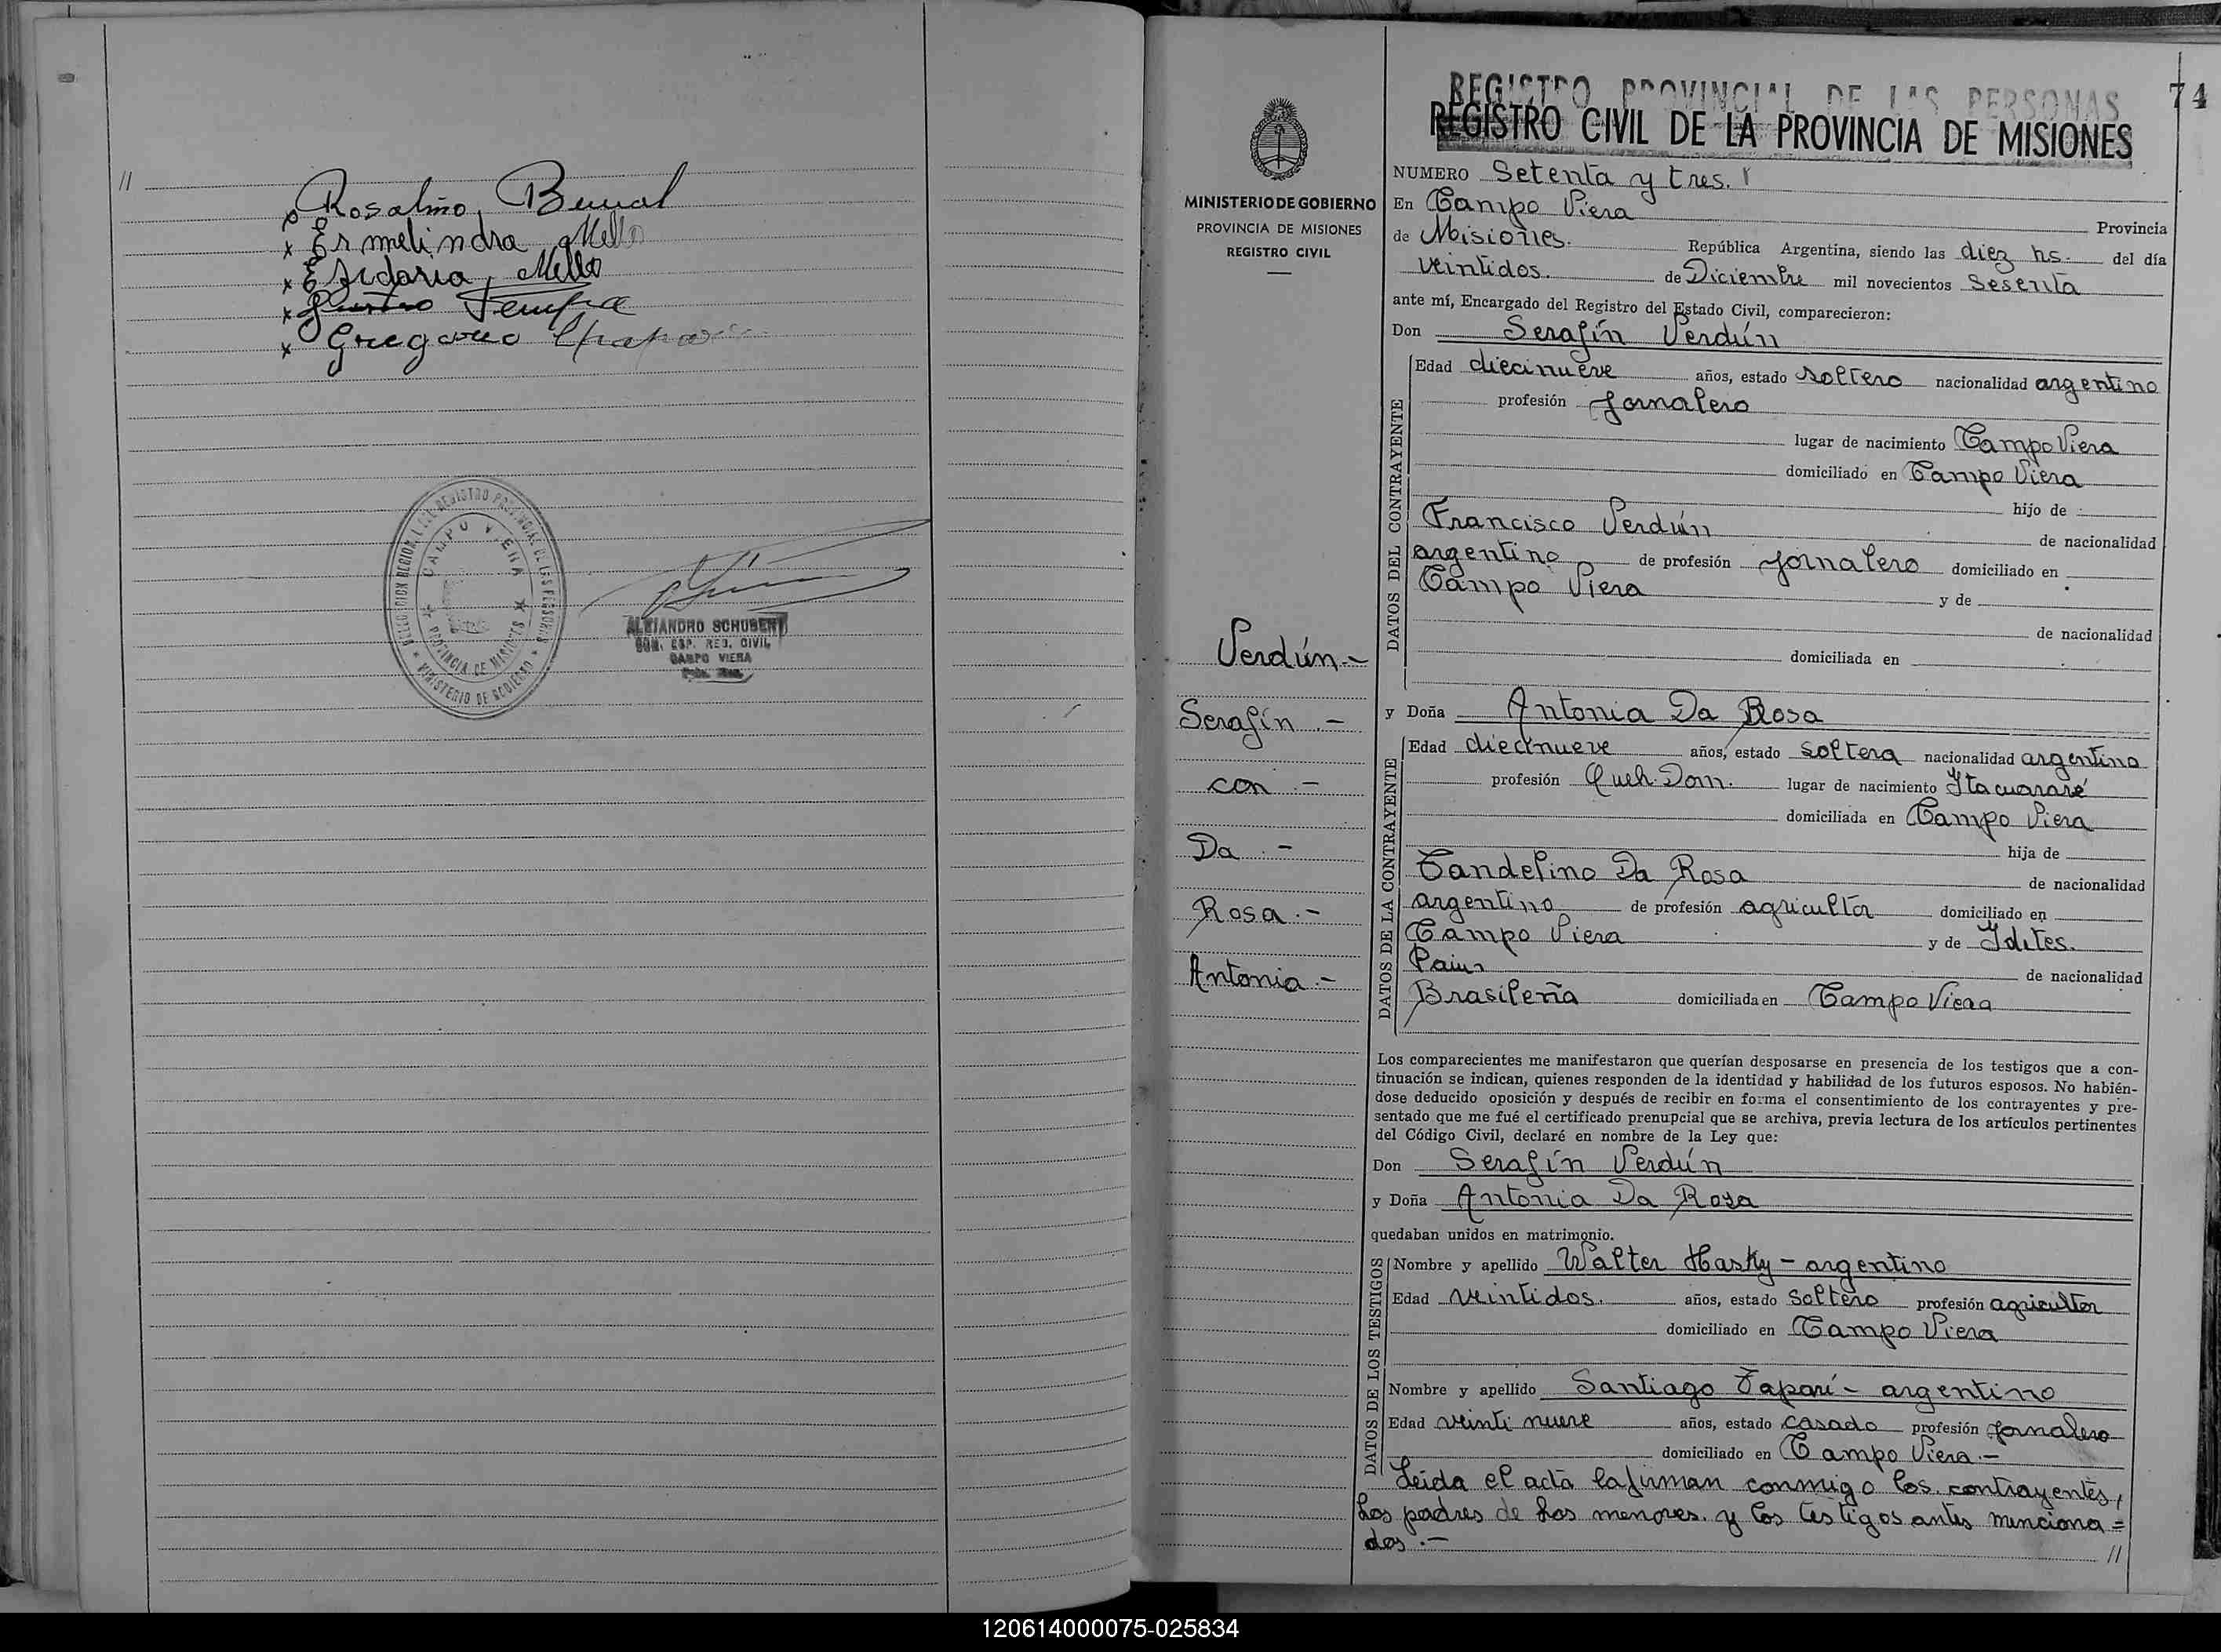 //
Rosalino Bernal
x Ermelindra Mello
x Mello
x
x Gregorio
CAMPO VIERA
PROVINCIA DE MISIONES
MINISTERIO DE GOBIERNO
ALEJANDRO SCHUBERT
REG. CIVIL
CAMPO VIERA
74
REGISTRO PROVINCIAL DE LAS PERSONAS
REGISTRO CIVIL DE LA PROVINCIA DE MISIONES
MINISTERIO DE GOBIERNO
PROVINCIA DE MISIONES
REGISTRO CIVIL
Verdún.-
Serafín.-
con.-
Da.-
Rosa.-
Antonia.-
NUMERO Setenta y tres.
En Campo Viera Provincia
de Misiones. República Argentina, siendo las diez hs. del día
veintidos. de Diciembre mil novecientos Sesenta
ante mí, Encargado del Registro del Estado Civil, comparecieron:
Don Serafín Verdún
DATOS DEL CONTRAYENTE
Edad diecinueve años, estado soltero nacionalidad argentino
profesión Jornalero
lugar de nacimiento Campo Viera
domiciliado en Campo Viera
hijo de
Francisco Verdún de nacionalidad
argentino de profesión Jornalero domiciliado en
Campo Viera y de
de nacionalidad
domiciliada en
y Doña Antonia Da Rosa
DATOS DE LA CONTRAYENTE
Edad diecinueve años, estado soltera nacionalidad argentina
profesión Queh. Dom. lugar de nacimiento Itacuararé
domiciliada en Campo Viera
hija de
Candelino Da Rosa de nacionalidad
argentino de profesión agricultor domiciliado en
Campo Viera y de
de nacionalidad
Brasileña domiciliada en Campo Viera
Los comparecientes me manifestaron que querían desposarse en presencia de los testigos que a con-
tinuación se indican, quienes responden de la identidad y habilidad de los futuros esposos. No habién-
dose deducido oposición y después de recibir en forma el consentimiento de los contrayentes y pre-
sentado que me fué el certificado prenupcial que se archiva, previa lectura de los artículos pertinentes
del Código Civil, declaré en nombre de la Ley que:
Don Serafín Verdún
y Doña Antonia Da Rosa
quedaban unidos en matrimonio.
DATOS DE LOS TESTIGOS
Nombre y apellido Walter Hasky - argentino
Edad veintidos. años, estado soltero profesión agricultor
domiciliado en Campo Viera
Nombre y apellido Santiago Taparí - argentino
Edad veinti nueve años, estado casado profesión Jornalero
domiciliado en Campo Viera.-
Leida el acta la firman conmigo los contrayentes,
los padres de los menores. y los testigos antes menciona=
dos.- //
120614000075-025834